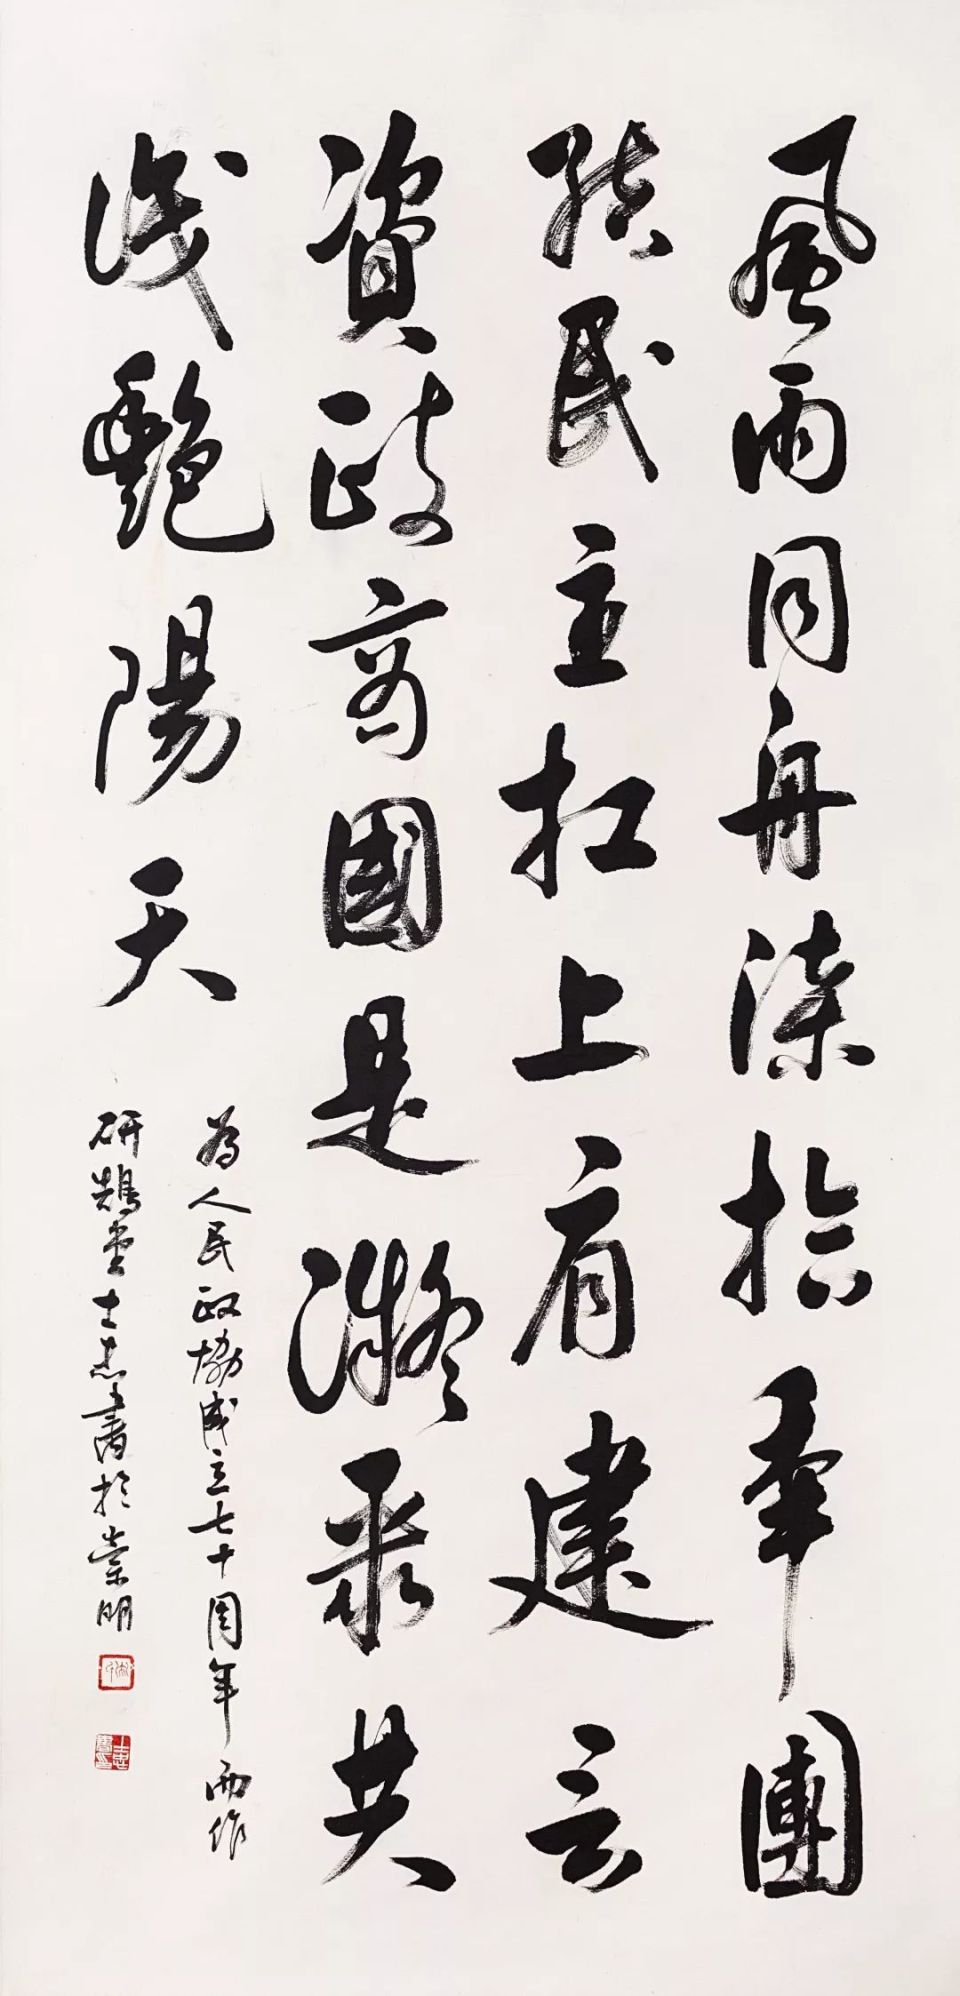 風雨同舟漆拾年團
結民主扛上肩建言
資政商國是凝聚共
識艷陽天
為人民政協成立七十周年而作
研堂士書於崇明